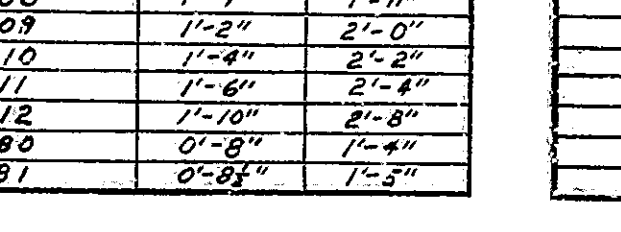 09 1'-2" 2'-0"
10 1'-4" 2'-2"
11 1'-6" 2'-4"
12 1'-10" 2'-8"
80 0'-8" 1'-4"
81 0'-8½" 1'-5"